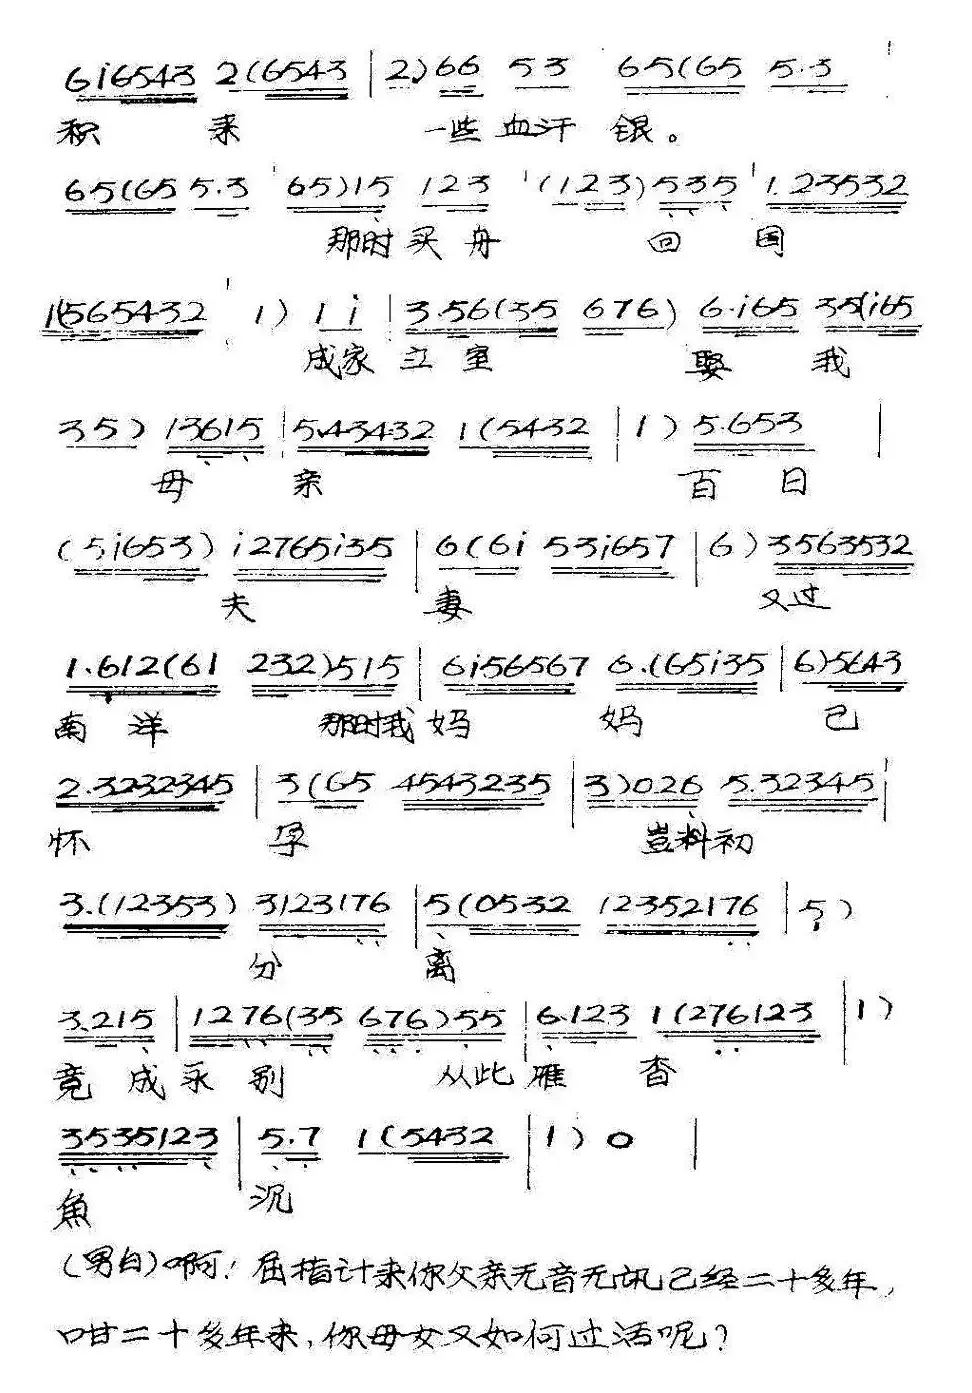 6i6543 2(6543 | 2.)66 53 65(65 5.3
积 来 一些血汗 银。
65(65 5.3 65)15 123 (123)535 1.23532
那时买舟 回 国
1(565432 1) 1 i 3.56(35 676) 6.i65 35(i65
成家 立 室 娶 我
35) 13615 5.43432 1(5432 | 1) 5.653 |
母 亲 百 日
(5.i653) i2765i35 | 6(6i 53i657 | 6) 3563532
夫 妻 又过
1.612(61 232)515 | 6i56567 6.(65i35 | 6)5643
南 洋 那时我 妈 妈 已
2.3232345 | 3(65 4543235 | 3)026 5.32345
怀 孕 岂料初
3.(12353) 3123176 | 5(0532 12352176 | 5)
分 离
3.215 | 1276(35 676)55 | 6.123 1(276123 | 1)
竟 成 永 别 从此 雁 杳
3535123 | 5.7 1(5432 | 1) 0 |
魚 沉
(男白)啊！屈指计来你父亲无音无讯已经二十多年，
咁二十多年来，你母女又如何过活呢？